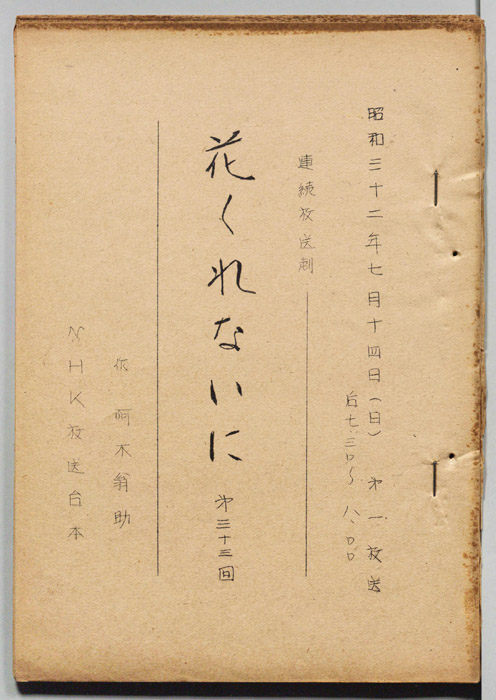 昭和三十二年七月十四日(日) 第一放送
后七.三〇〜八.〇〇
連続放送劇
花くれないに 第三十三回
作 阿木翁助
NHK放送台本